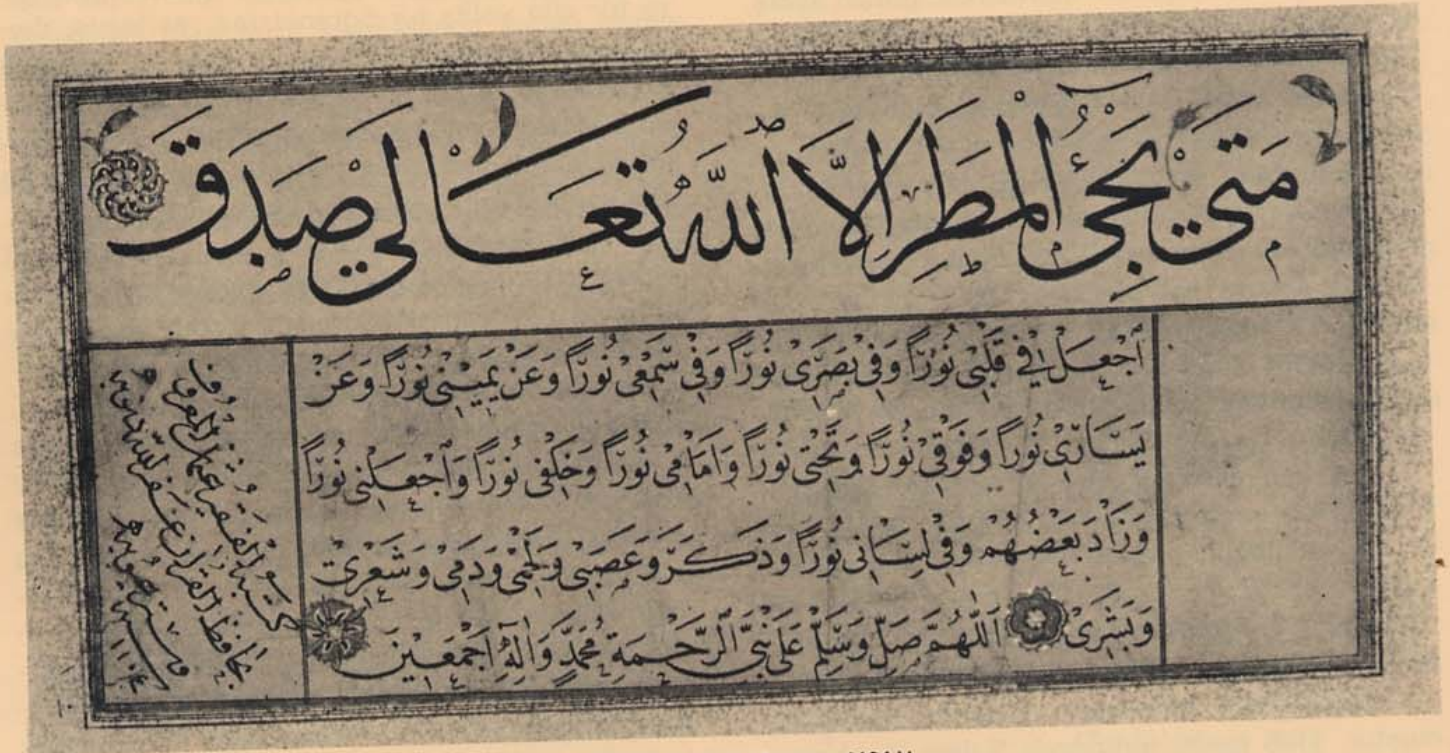 مَتَى يَجِيْءُ الْمَطَرُ اِلَّا اللّٰهُ تَعَالٰي صَدَقَ
اَجْعَلْ فِي قَلْبِى نُوْرًا وَفِي بَصَرِى نُوْرًا وَفِي سَمْعِى نُوْرًا وَعَنْ يَمِيْنِى نُوْرًا وَعَنْ
يَسَارِى نُوْرًا وَفَوْقِى نُوْرًا وَتَحْتِى نُوْرًا وَاَمَامِى نُوْرًا وَخَلْفِى نُوْرًا وَاجْعَلْنِى نُوْرًا
وَزَادَ بَعْضُهُمْ وَفِي لِسَانِى نُوْرًا وَذَكَرَ وَعَصَبِى وَلَحْمِى وَدَمِى وَشَعْرِى
وَبَشَرِى اَللّٰهُمَّ صَلِّ وَسَلِّمْ عَلٰى نَبِىِّ الرَّحْمَةِ مُحَمَّدٍ وَاٰلِهِ اَجْمَعِيْنَ
كتبه الفقير عثمان المعروف
بحافظ القرآن غفر الله ذنوبه
وستر عيوبه
سنة ١١٠٤